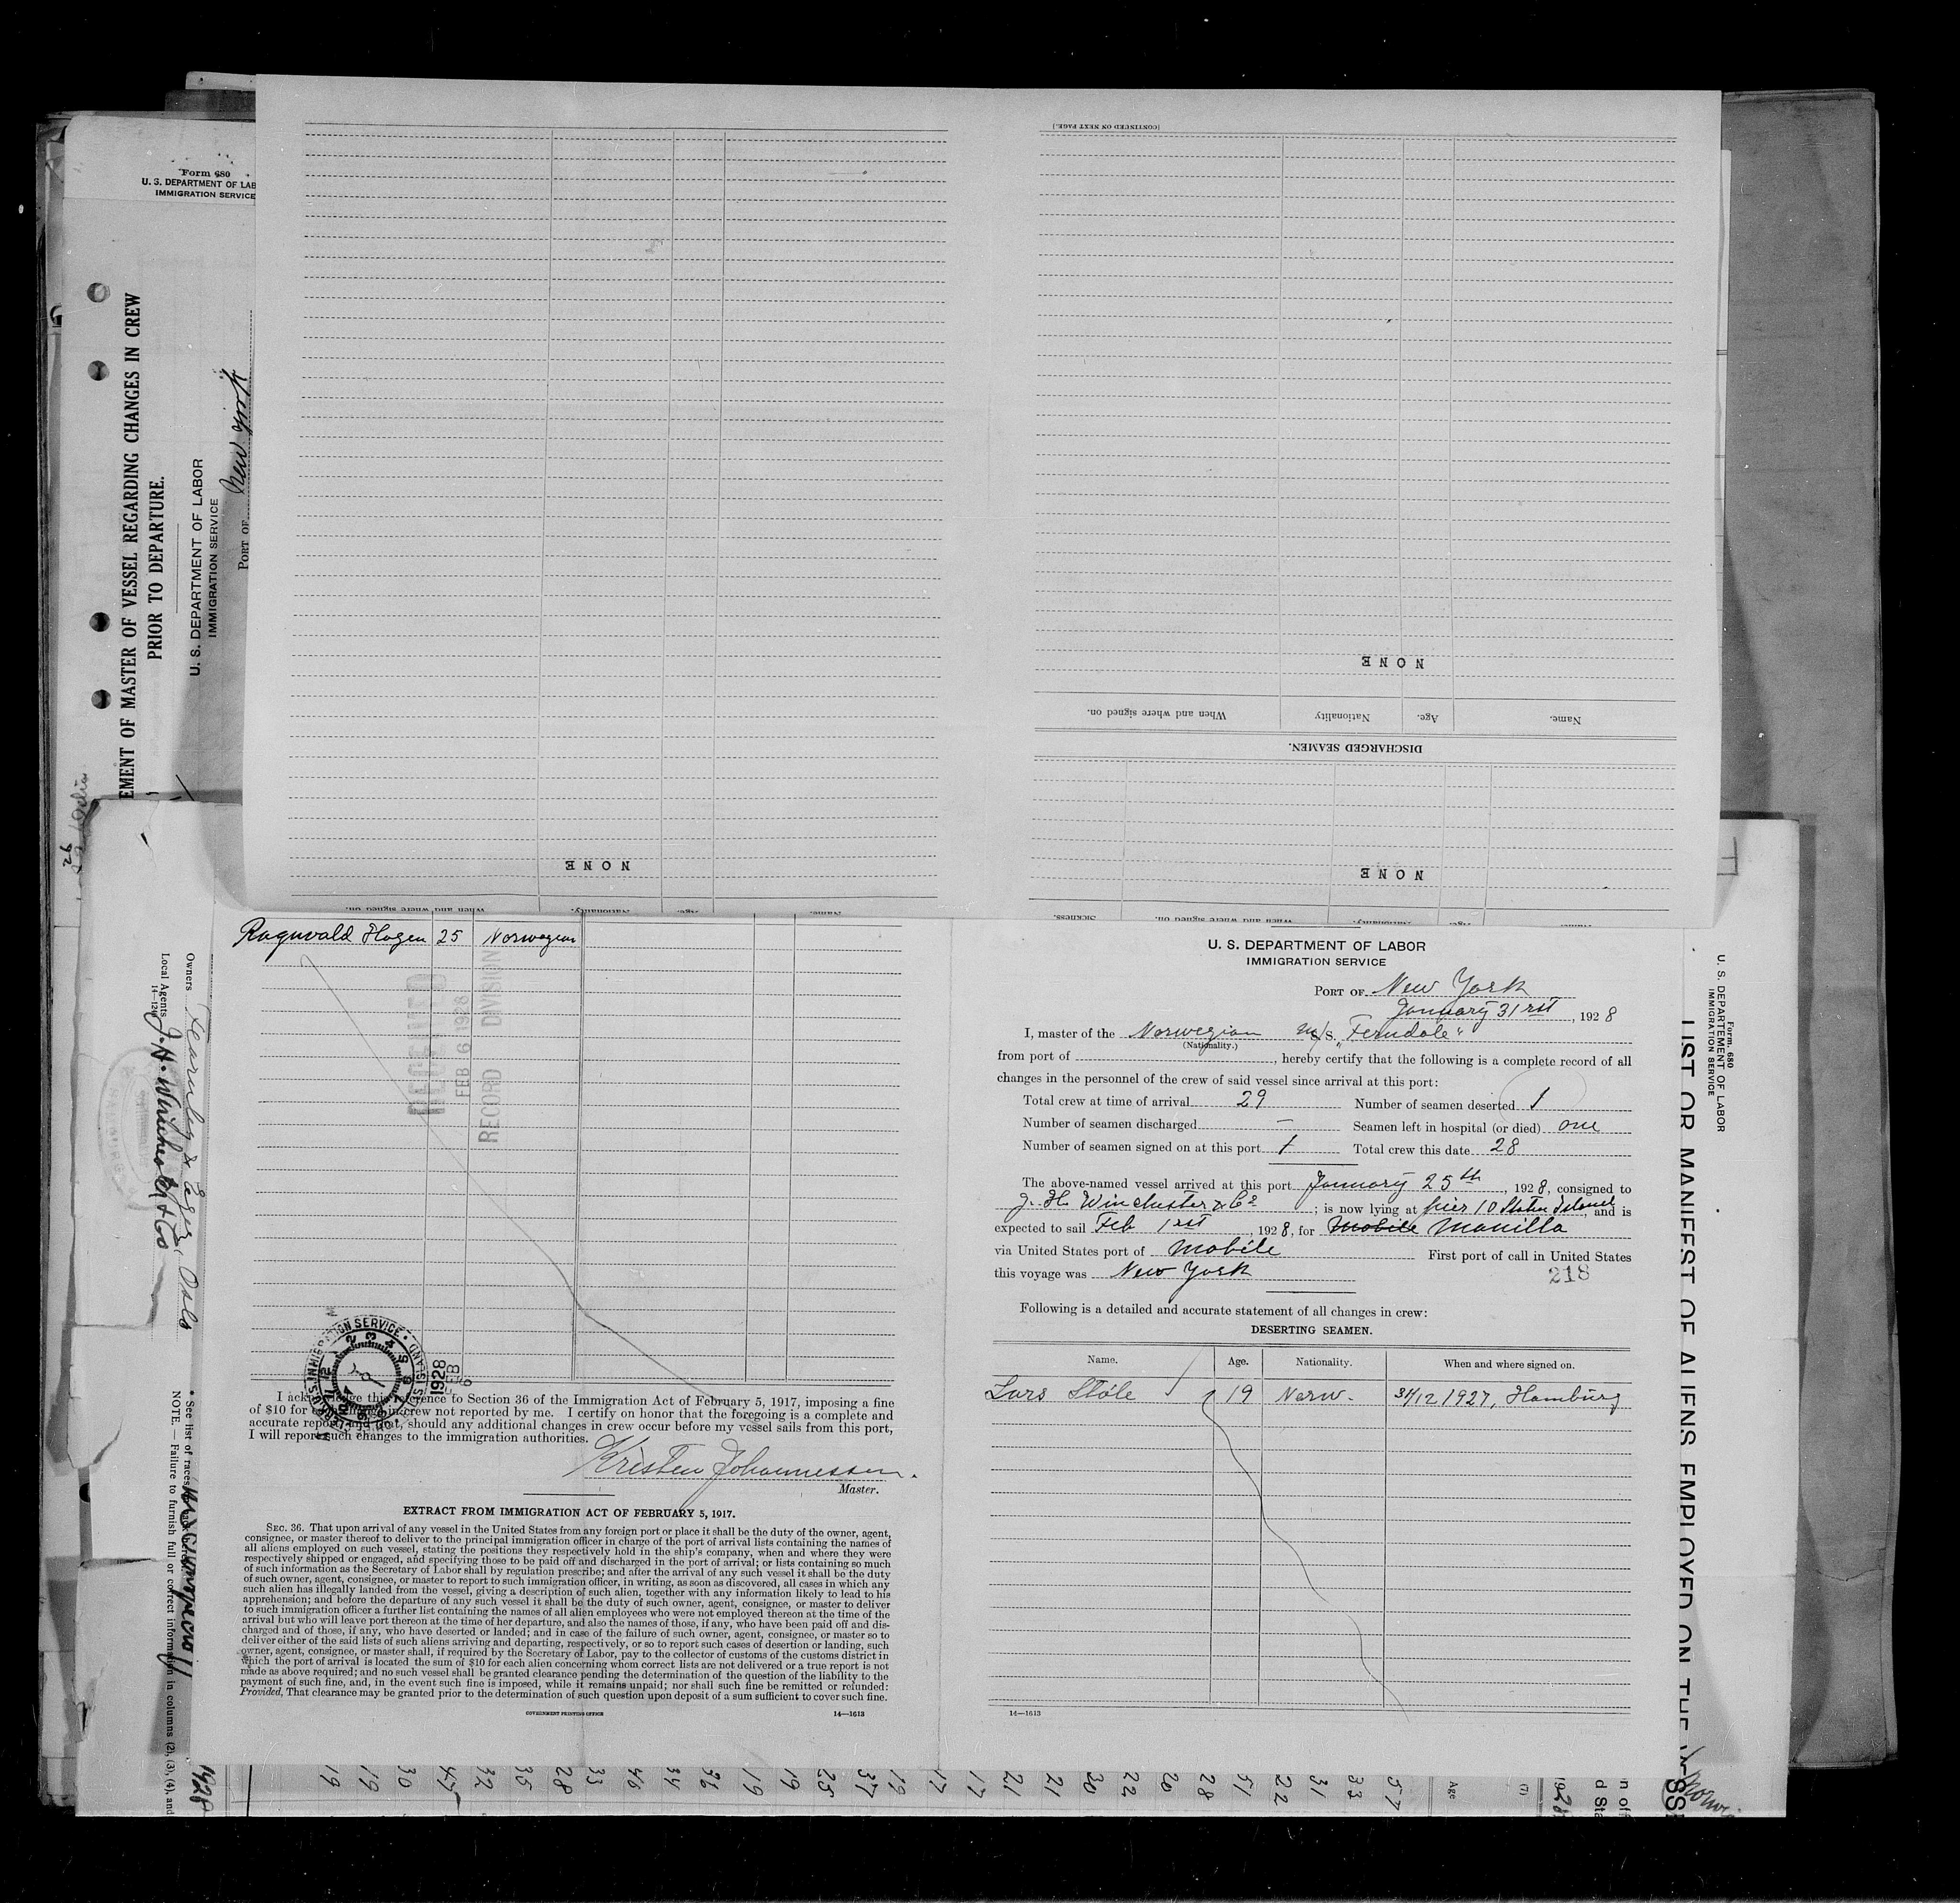 Form 680
U. S. DEPARTMENT OF LAB
IMMIGRATION SERVICE
EMENT OF MASTER OF VESSEL REGARDING CHANGES IN CREW
PRIOR TO DEPARTURE.
U. S. DEPARTMENT OF LABOR
IMMIGRATION SERVICE
PORT OF New York
[CONTINUED ON NEXT PAGE.]
NONE
Name. Age. Nationality When and where signed on.
DISCHARGED SEAMEN.
NONE
Name. Age. Nationality. When and where signed on. Sickness.
NONE
Name. Age. Nationality. When and where signed on.
Ragnvald Hagen 25 Norwegian
RECEIVED
FEB 6 1928
RECORD DIVISION
1928
FEB
6
I acknowledge this reference to Section 36 of the Immigration Act of February 5, 1917, imposing a fine
of $10 for each change in crew not reported by me. I certify on honor that the foregoing is a complete and
accurate report and that, should any additional changes in crew occur before my vessel sails from this port,
I will report such changes to the immigration authorities.
Kristen Johannessen.
Master.
EXTRACT FROM IMMIGRATION ACT OF FEBRUARY 5, 1917.
SEC. 36. That upon arrival of any vessel in the United States from any foreign port or place it shall be the duty of the owner, agent,
consignee, or master thereof to deliver to the principal immigration officer in charge of the port of arrival lists containing the names of
all aliens employed on such vessel, stating the positions they respectively hold in the ship's company, when and where they were
respectively shipped or engaged, and specifying those to be paid off and discharged in the port of arrival; or lists containing so much
of such information as the Secretary of Labor shall by regulation prescribe; and after the arrival of any such vessel it shall be the duty
of such owner, agent, consignee, or master to report to such immigration officer, in writing, as soon as discovered, all cases in which any
such alien has illegally landed from the vessel, giving a description of such alien, together with any information likely to lead to his
apprehension; and before the departure of any such vessel it shall be the duty of such owner, agent, consignee, or master to deliver
to such immigration officer a further list containing the names of all alien employees who were not employed thereon at the time of the
arrival but who will leave port thereon at the time of her departure, and also the names of those, if any, who have been paid off and dis-
charged and of those, if any, who have deserted or landed; and in case of the failure of such owner, agent, consignee, or master so to
deliver either of the said lists of such aliens arriving and departing, respectively, or so to report such cases of desertion or landing, such
owner, agent, consignee, or master shall, if required by the Secretary of Labor, pay to the collector of customs of the customs district in
which the port of arrival is located the sum of $10 for each alien concerning whom correct lists are not delivered or a true report is not
made as above required; and no such vessel shall be granted clearance pending the determination of the question of the liability to the
payment of such fine, and, in the event such fine is imposed, while it remains unpaid; nor shall such fine be remitted or refunded:
Provided, That clearance may be granted prior to the determination of such question upon deposit of a sum sufficient to cover such fine.
GOVERNMENT PRINTING OFFICE 14—1613
U. S. DEPARTMENT OF LABOR
IMMIGRATION SERVICE
PORT OF New York
January 31rst, 1928
I, master of the Norwegian M/S. "Ferndale"
(Nationality.)
from port of , hereby certify that the following is a complete record of all
changes in the personnel of the crew of said vessel since arrival at this port:
Total crew at time of arrival 29 Number of seamen deserted 1
Number of seamen discharged – Seamen left in hospital (or died) one
Number of seamen signed on at this port 1 Total crew this date 28
The above-named vessel arrived at this port January 25th, 1928, consigned to
J. H. Winchester & Co ; is now lying at pier 10 Staten Island, and is
expected to sail Feb 1rst, 1928, for Mobile Manilla
via United States port of Mobile First port of call in United States
this voyage was New York
218
Following is a detailed and accurate statement of all changes in crew:
DESERTING SEAMEN.
Name. Age. Nationality. When and where signed on.
Lars Stöle 19 Norw. 31/12 1927, Hamburg
14—1613
Owners Fearnley & Eger, Oslo
Local Agents J. H. Winchester & Co
* See list of races
NOTE.—Failure to furnish full or correct information in columns (2), (3), (4), and
1928
Form 680
U. S. DEPARTMENT OF LABOR
IMMIGRATION SERVICE
LIST OR MANIFEST OF ALIENS EMPLOYED ON THE
19 19 30 45 32 35 28 33 40 34 36 19 19 25 37 19 17 17 21 21 30 22 20 28 51 22 31 33 57 Age (7)